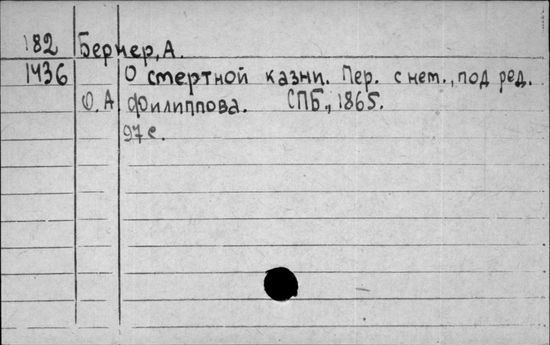 182 Бернер, А.
1436 О смертной казни. Пер. с нем., под ред.
Ф. А Филиппова. СПБ., 1865.
97 с.